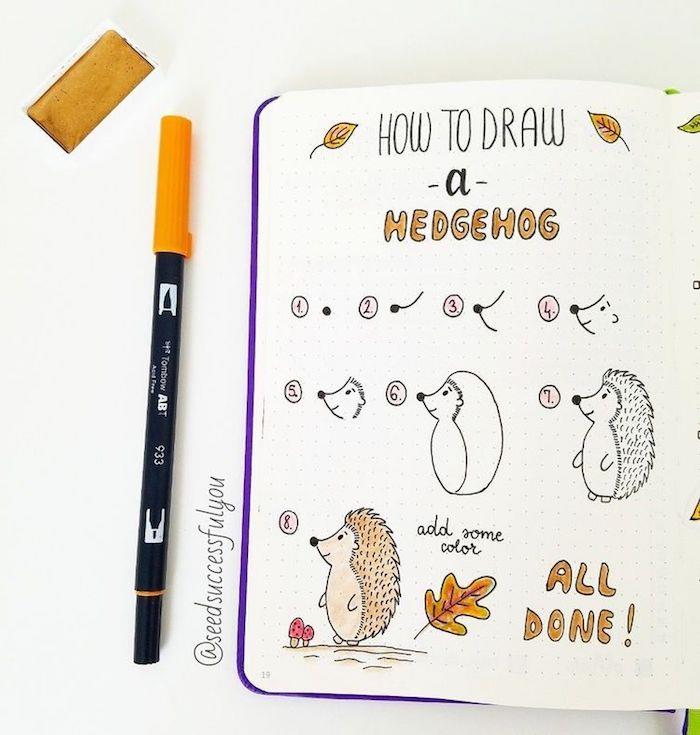 HOW TO DRAW
-a-
HEDGEHOG
1. 2. 3. 4.
5. 6. 7.
8.
add some
color
ALL
DONE!
19
@seedsuccessfulyou
Tombow ABT
Acid Free
933